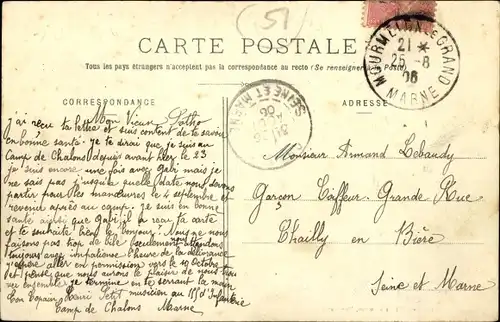 (51)
CARTE POSTALE
Tous les pays étrangers n'acceptent pas la correspondance au recto (Se renseigner à la Poste)
MOURMELON-LE-GRAND
21 *
25 -8
06
MARNE
CORRESPONDANCE
ADRESSE
SEINE ET MARNE
06
Mon Vieux
j'ai reçu ta lettre et suis content de te savoir
en bonne santé: je te dirai que je suis au
Camp de Chalons depuis avant hier le 23
je suis encore une fois avec Gabi mais je
ne sais pas jusqu'a quelle date nous devons
partir pour les manœuvres le 4 septembre et
revenir après au camp. Je suis en bonne
santé ainsi que Gabi il a reçu ta carte
et te souhaite bien le bonjour! Nous ne nous
faisons pas trop de bile seulement attendons
toujours avec impatience l'heure de la délivrance
j'espère aller en permission vers le 10 Octobre
et pense que nous aurons le plaisir de nous
ensemble je termine en te serrant la main
ton Copain Henri Petit musicien au d'Infanterie
Camp de Chalons Marne
Monsieur Armand Lebaudy
Garçon Coiffeur Grande Rue
Chailly en Bière
Seine et Marne